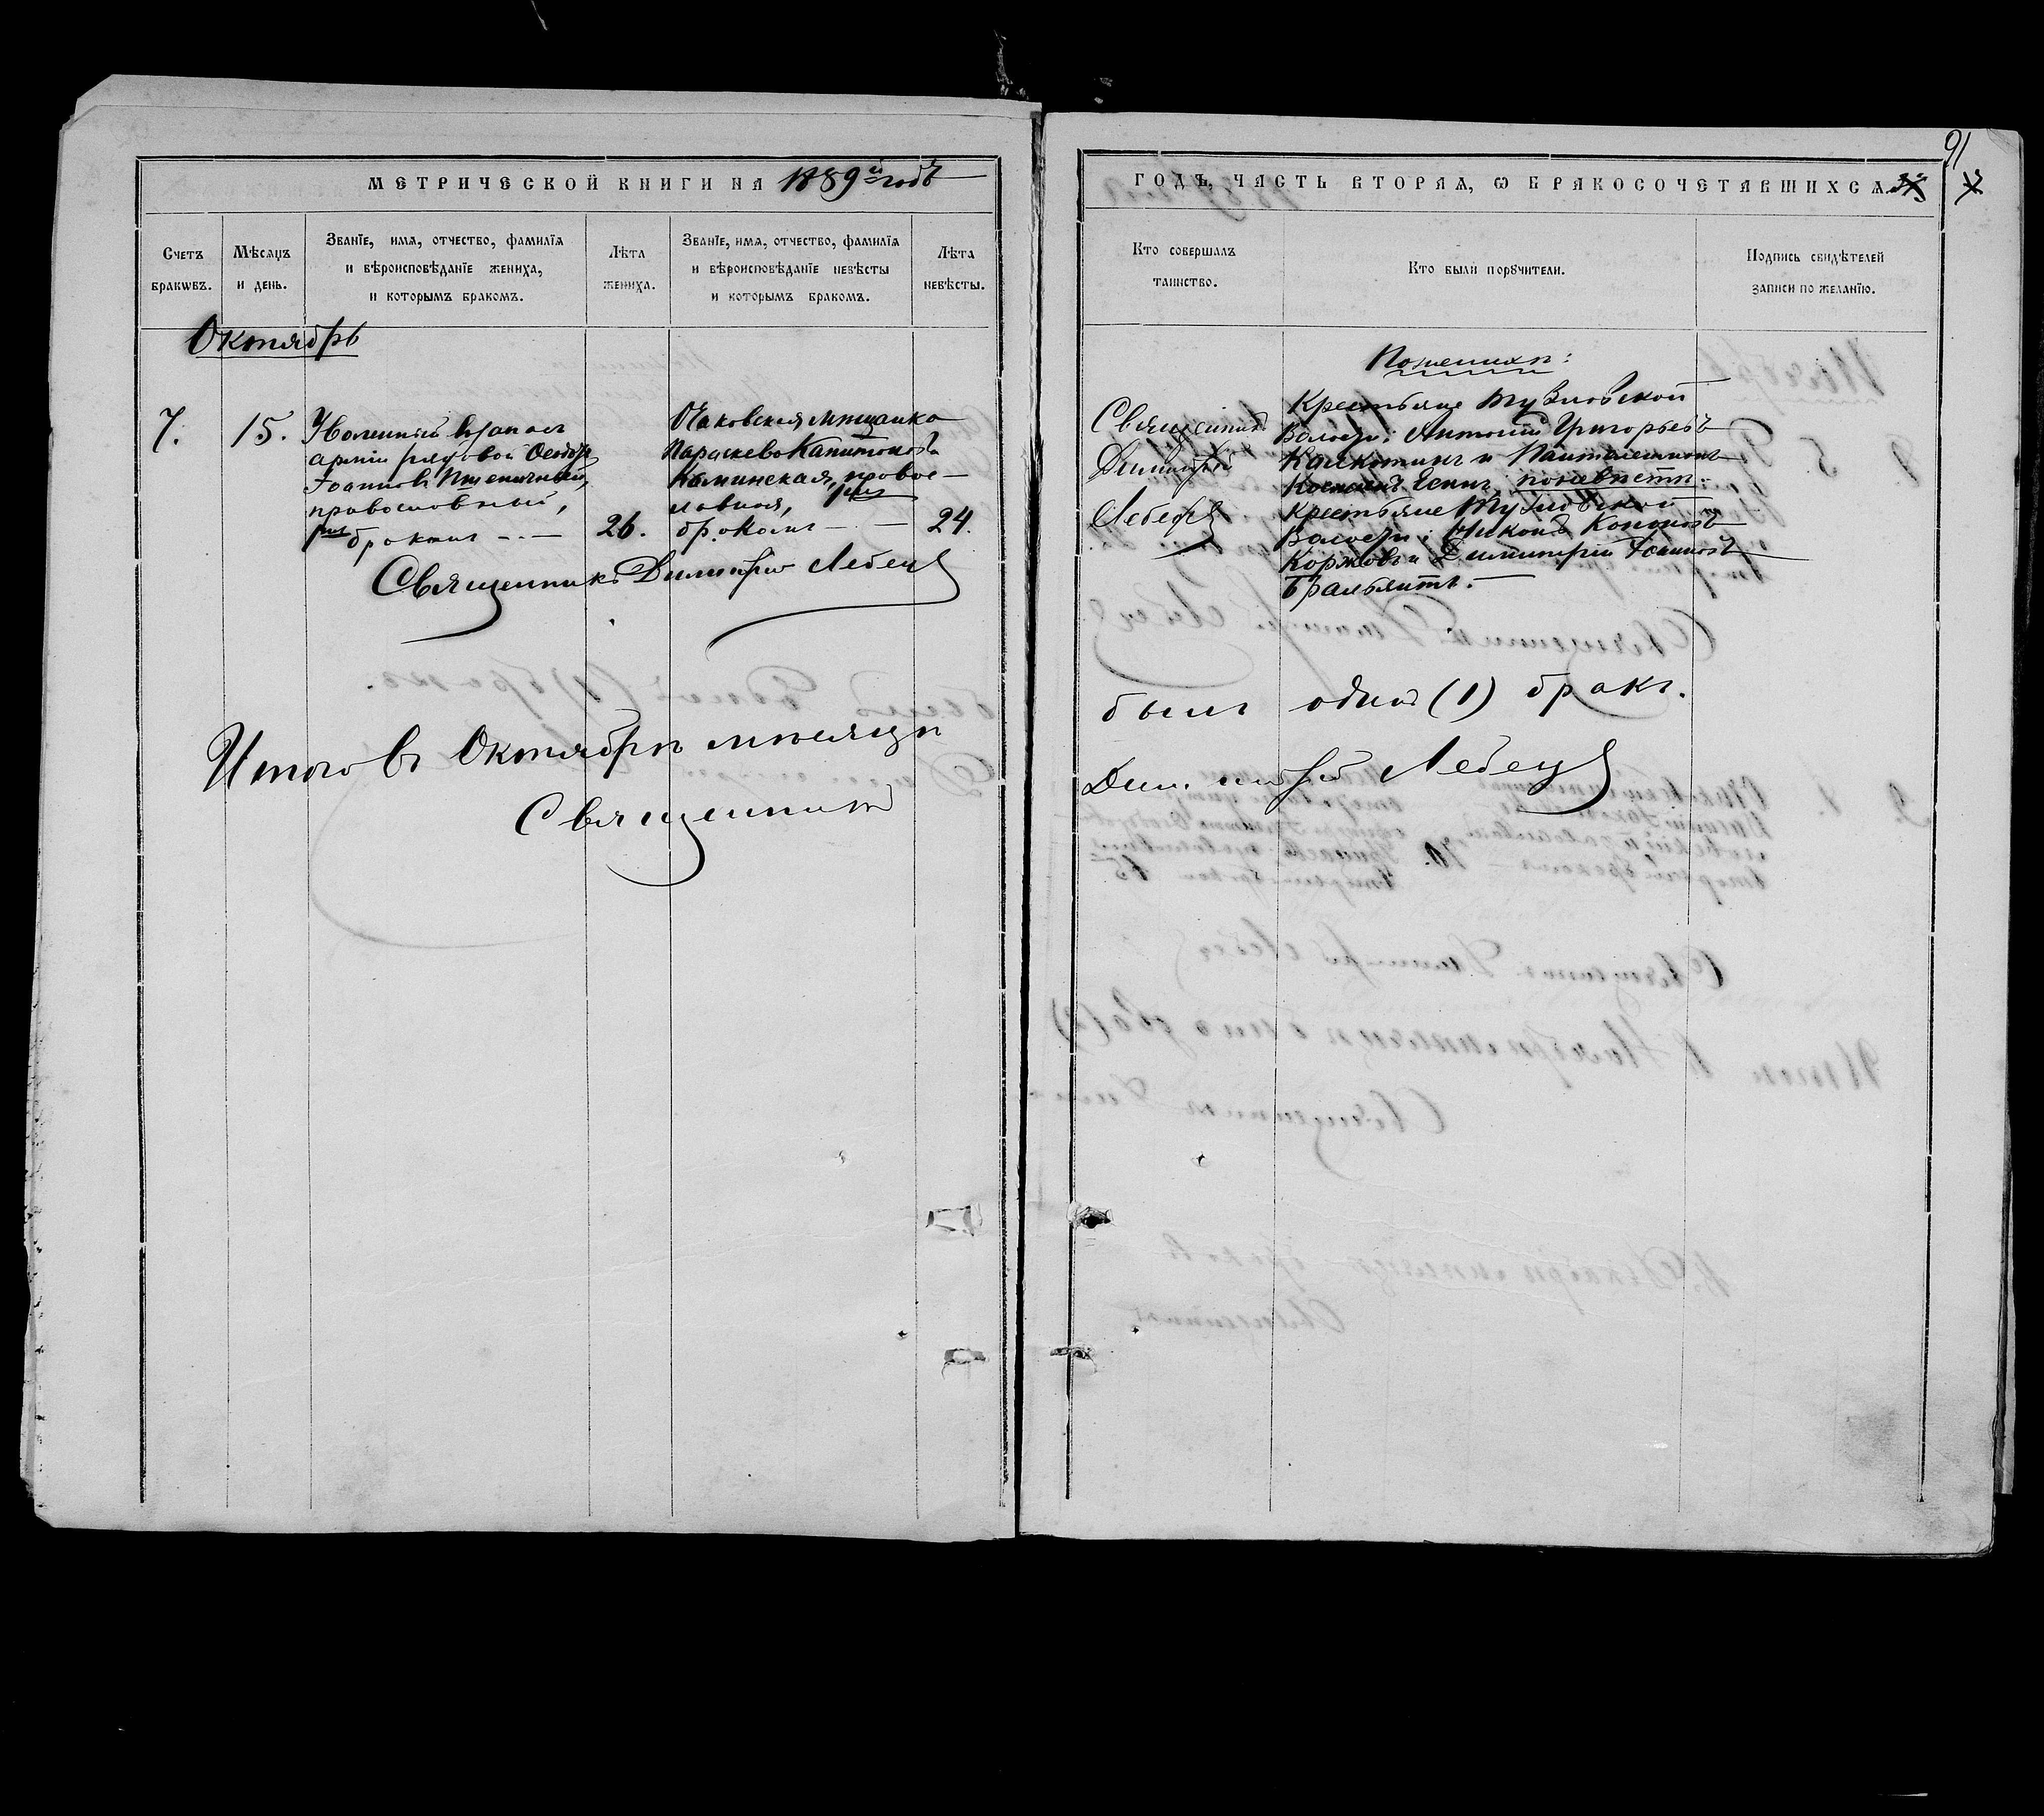 МЕТРИЧЕСКОЙ КНИГИ НА 1889й годъ
Счетъ браковъ.
Мѣсяцъ и день.
Званіе, имя, отчество, фамилія
и вѣроисповѣданіе жениха,
и которымъ бракомъ.
Лѣта
жениха.
Званіе, имя, отчество, фамилія
и вѣроисповѣданіе невѣсты
и которымъ бракомъ.
Лѣта
невѣсты.
Октябрь
7.
15.
Уволенный въ запасъ
арміи рядовой Ѳеодоръ
Іоанновъ Пшеничный,
православный,
бракомъ
26.
Очаковская мѣщанка
Параскева Капитонова
Каминская, правос-
лавная,
бракомъ
24.
Священникъ Димитрій Лебедь
Итого въ Октябрѣ мѣсяцѣ
Священникъ
91
ГОДЪ, ЧАСТЬ ВТОРАЯ, Ѡ БРАКОСОЧЕТАВШИХСЯ
Кто совершалъ
таинство.
Кто были поручители.
Подпись свидѣтелей
записи по желанію.
Священникъ
Димитрій
Лебедь
По женихѣ:
Крестьяне Тузловской
Волости: Антоній Григорьевъ
и Панталеимонъ
по невѣстѣ:
крестьяне Тузловской
Волости: Никонъ Кононовъ
Коржовъ и Димитрій Іоанновъ
былъ одинъ (1) бракъ.
Димитрій Лебедь